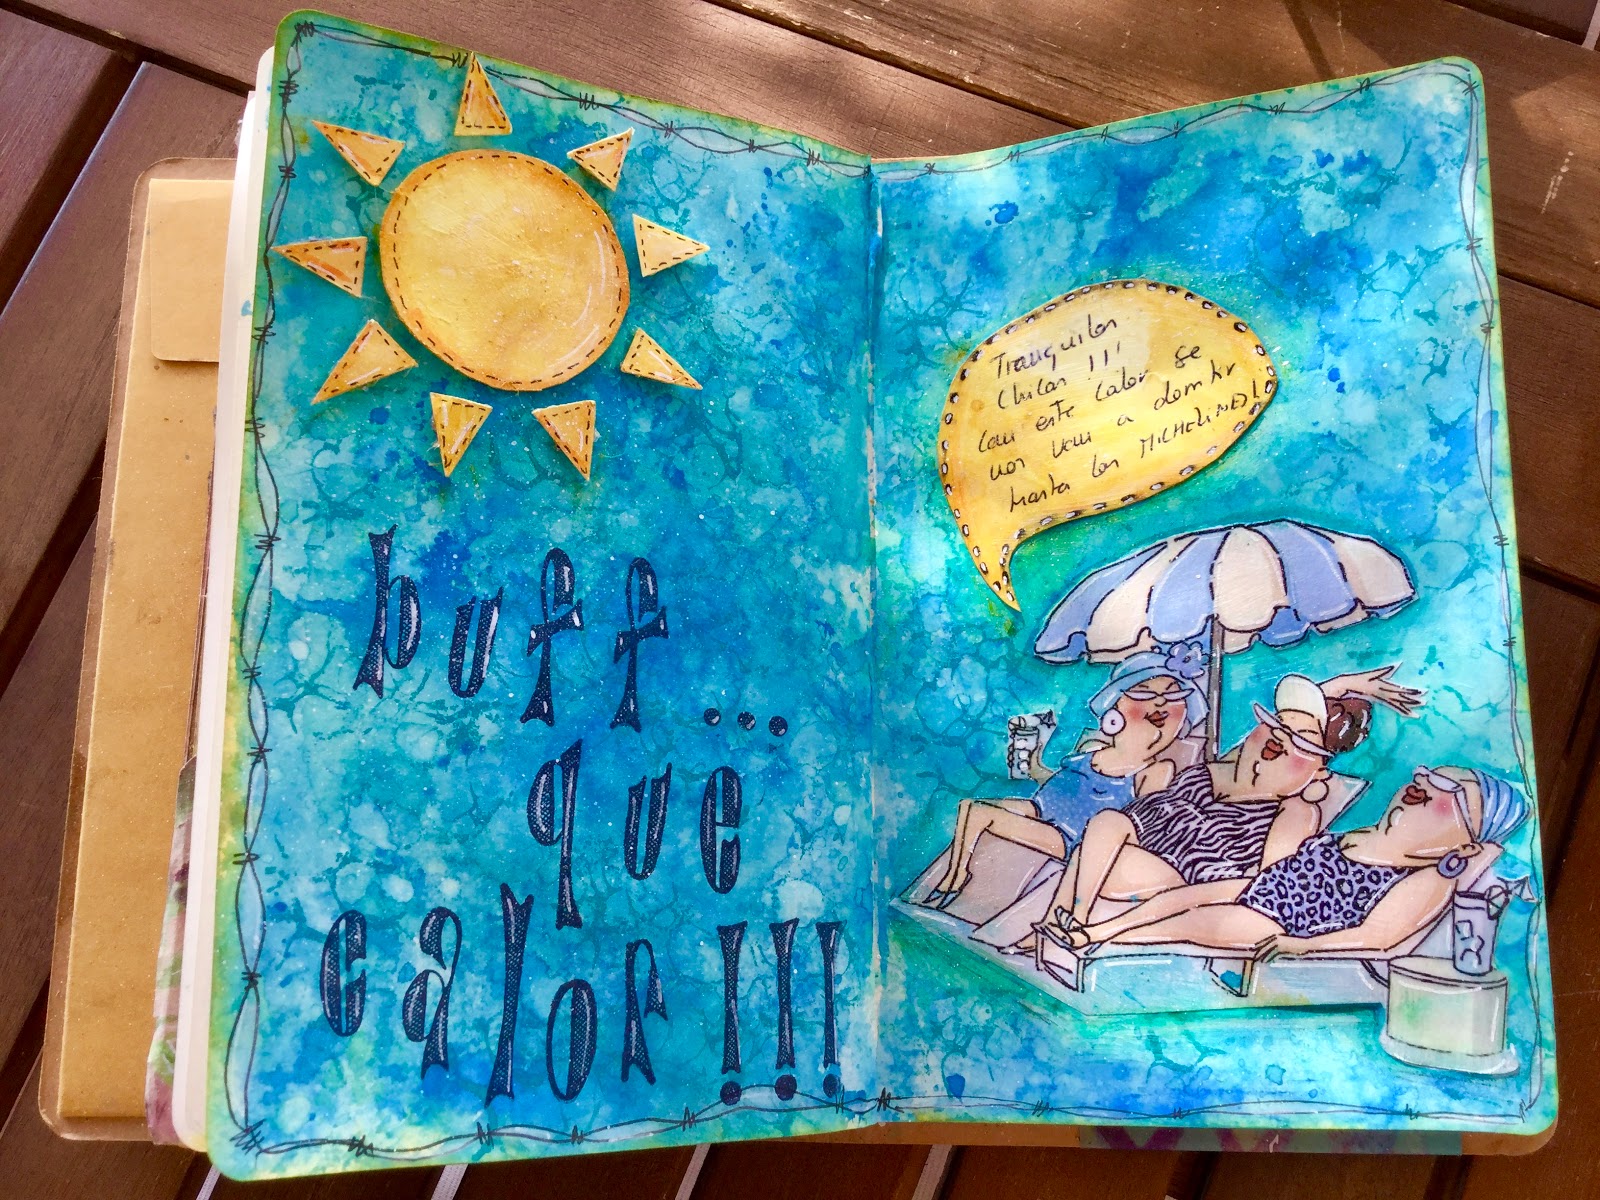 buff...
que
calor!!!
Tranquilas
Chicas !!!
Con este calor se
nos van a derretir
hasta los MICHELINES!